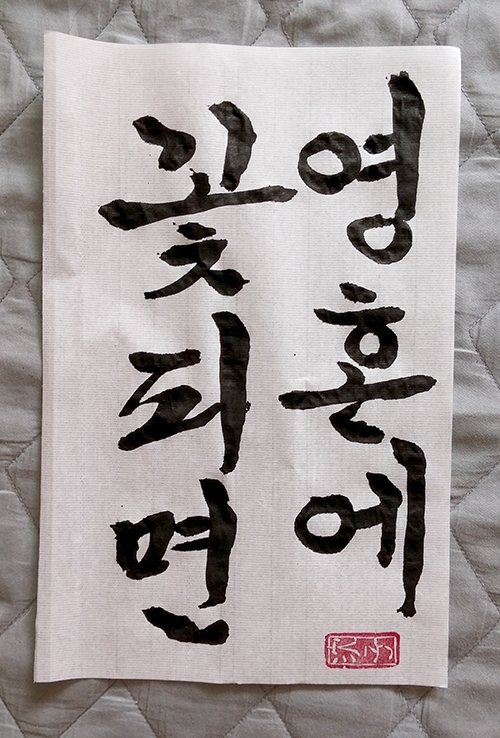 영혼에
꽃되면